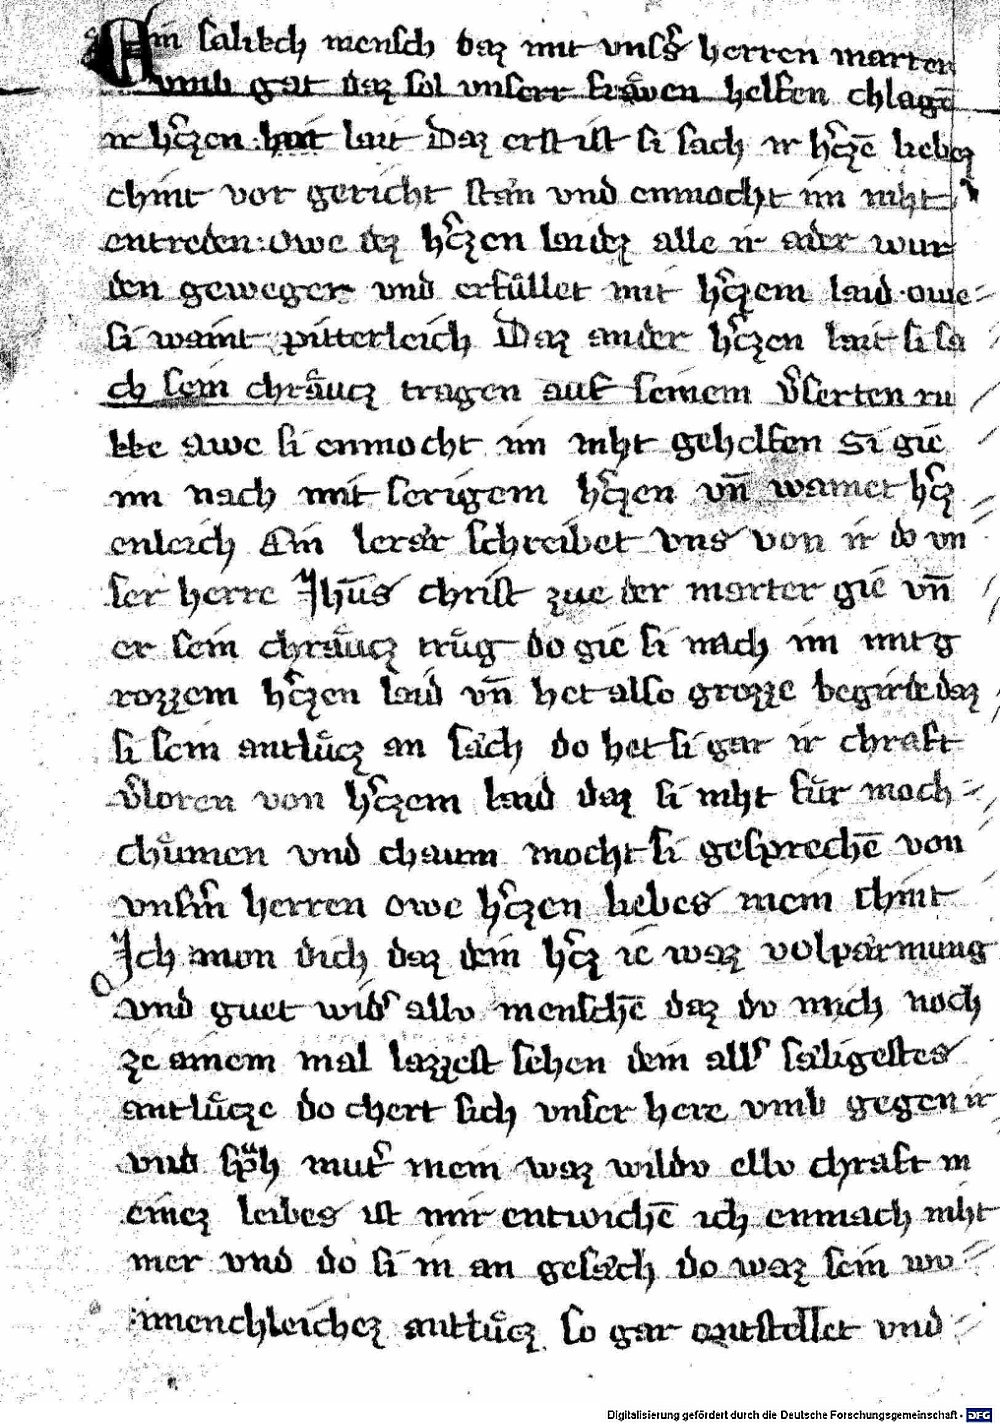 Ain salikch mensch daz mit unsß herren marter
umb gat daz sol unserr frawen helfen chlagē
ir hczen hat lait Daz erst ist si sach ir hczē liebez
chint vor gericht stan vnd enmocht im niht
entreden Owe dez hczen laidez alle ir ader wur
den geweget vnd erfullet mit hczem laid owe
si waint pitterleich Daz ander hczen lait si sa
ch sein chraucz tragen auf seinem vserten ru
kke Awe si enmocht im niht gehelfen Si gie
im nach mit serigem hczen vn̄ wainet hcz
enleich Ein lerar schreibet vns von ir do vn
ser herre Jhus christ zue der marter gie vn̄
er sein chraucz trug do gie si nach im mit g
rozzem hczen laid vn̄ het also grozze begirde daz
si sein antlucz an sach do het si gar ir chraft
vloren von hczem laid daz si niht fur moch
chumen vnd chaum mocht si gesprechē von
vnsm herren owe hczen liebes mein chint
Ich man dich daz dein hcz ie waz volparmung
vnd guet wid allv menschē daz dv mich noch
ze ainem mal lazzest sehen dein all saligestes
antlucze do chert sich vnser here vmb gegen ir
vnd sph mut mein waz wildv ellv chraft m
einez leibes ist mir entwichē ich enmach niht
mer vnd do si in an gesach do waz sein wu
nnenchleichez antlucz so gar entstellet vnd
Digitalisierung gefördert durch die Deutsche Forschungsgemeinschaft - DFG